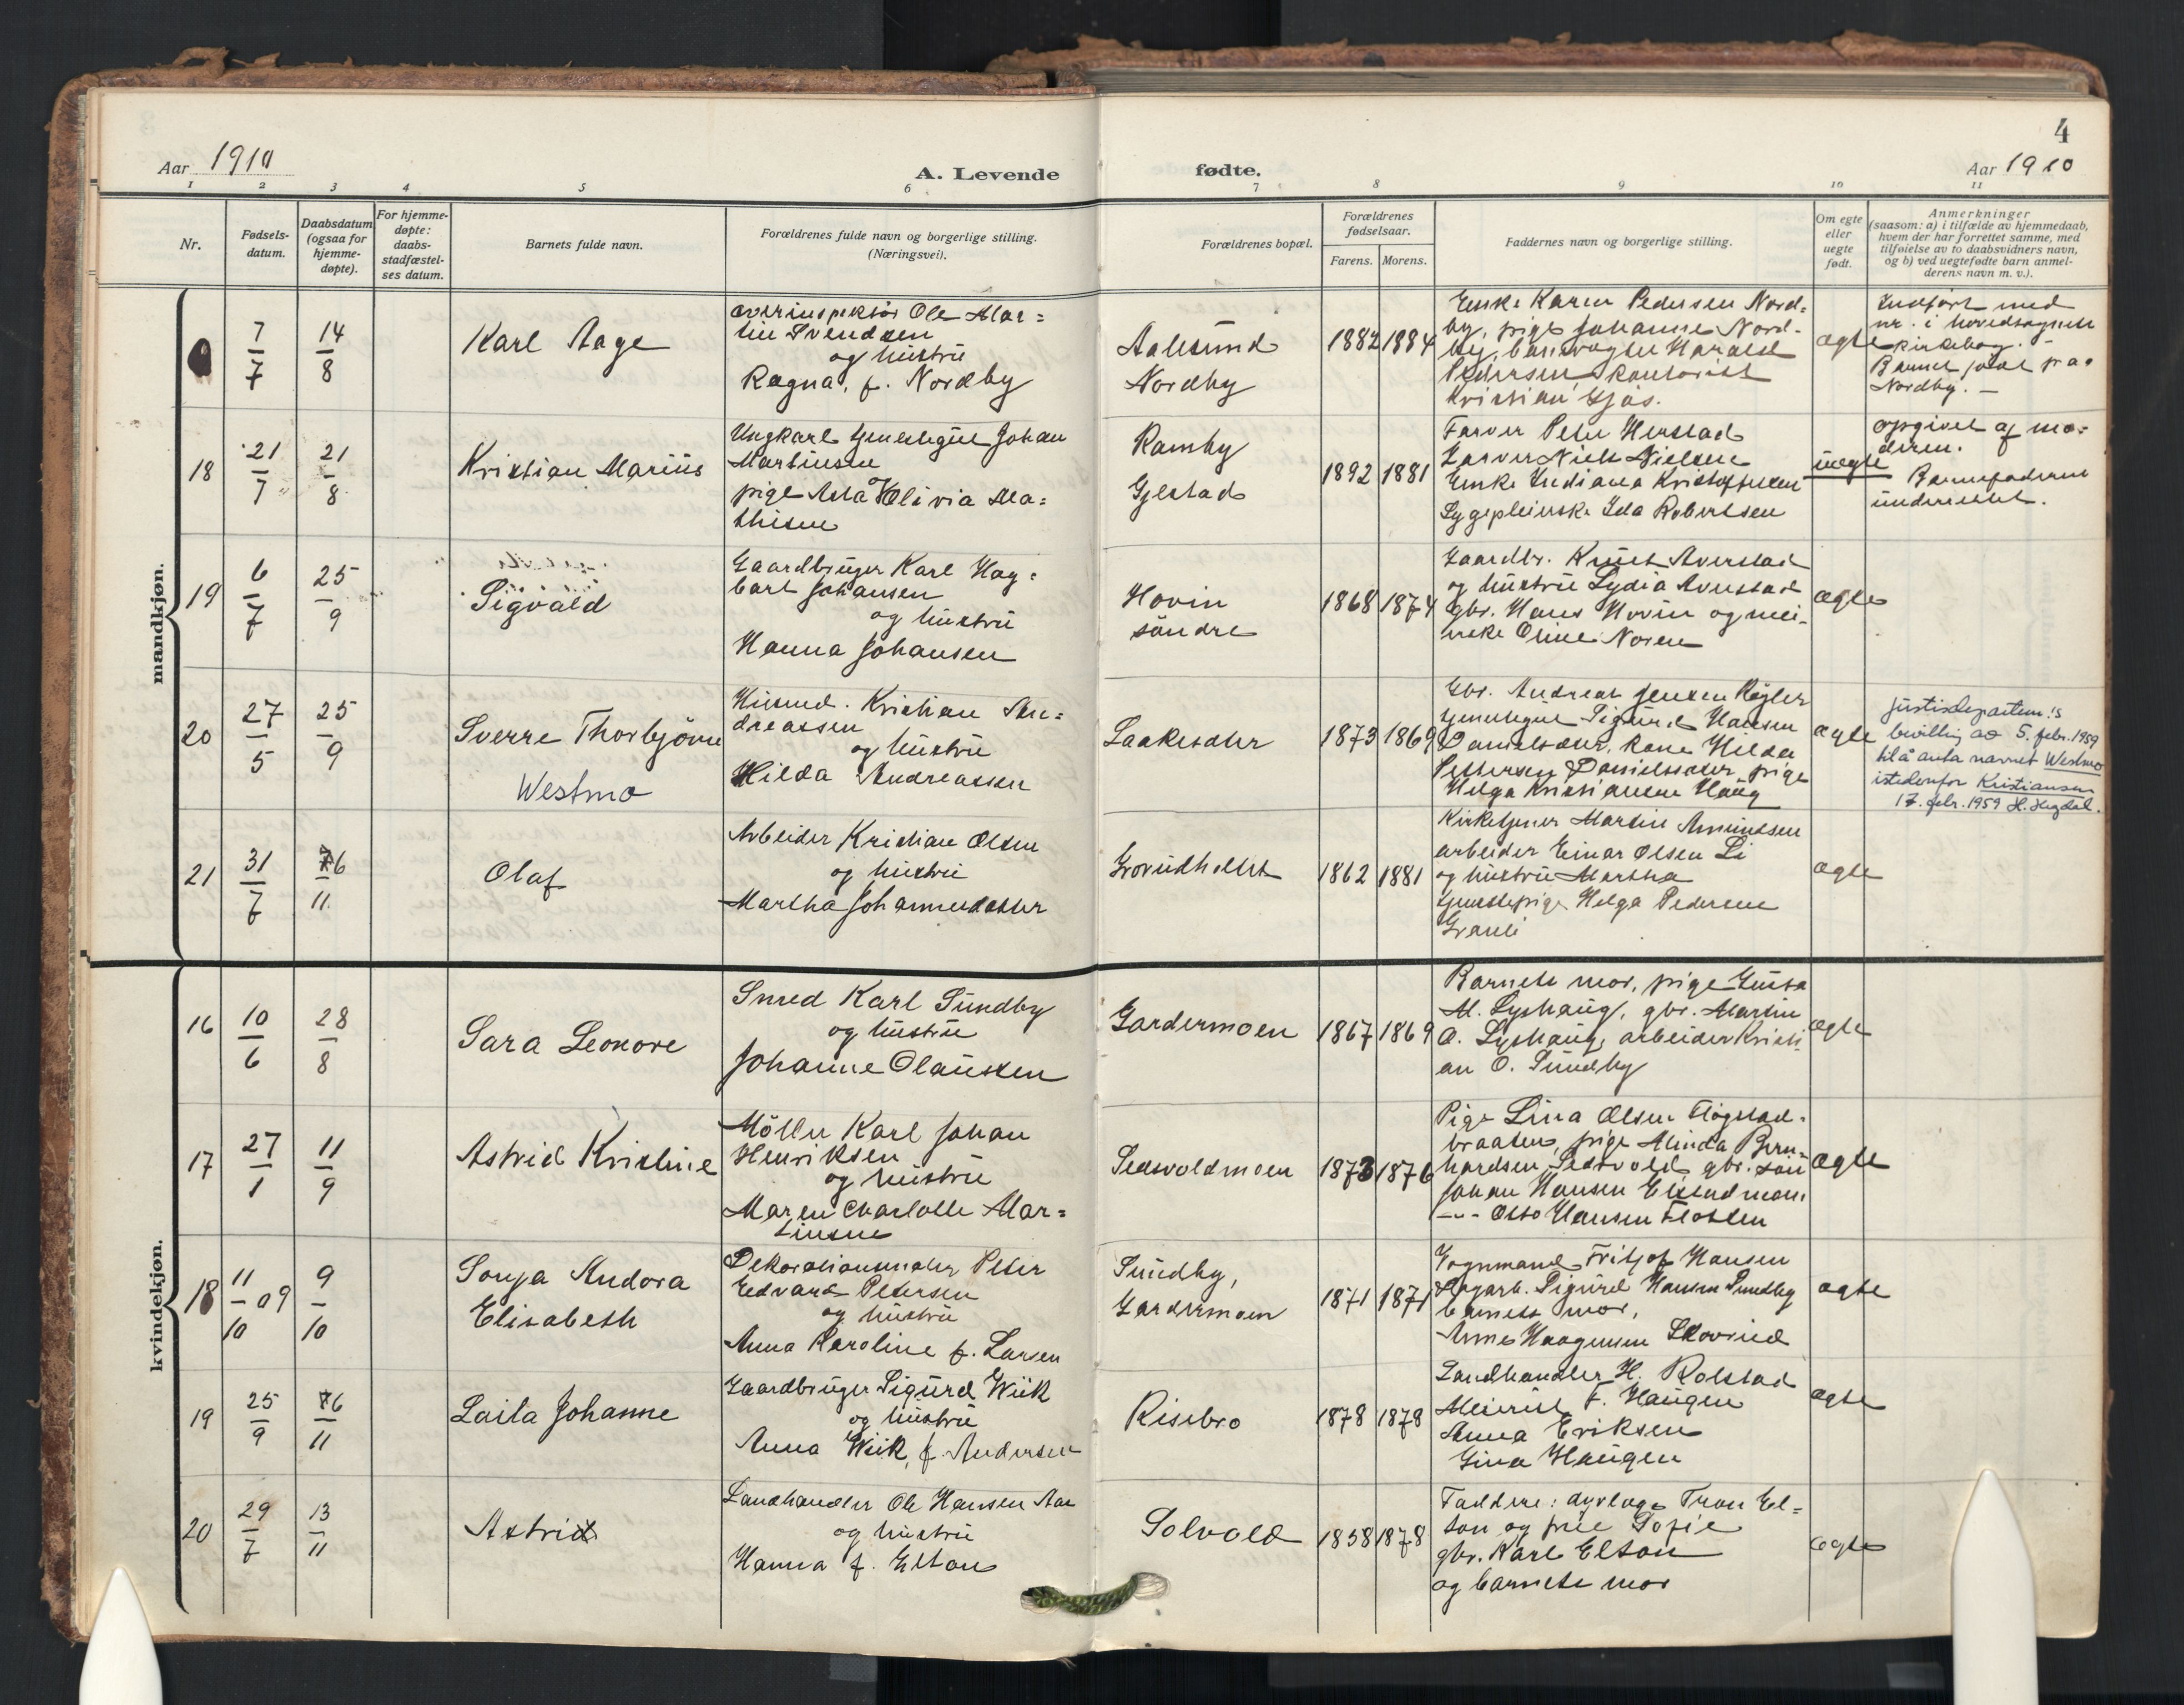 4
Aar 1910
A. Levende
fødte.
Aar 1910
1 2 3 4 5 6 7 8 9 10 11
Nr.
Fødsels-
datum.
Daabsdatum
(ogsaa for
hjemme-
døpte).
For hjemme-
døpte:
daabs-
stadfæstel-
ses datum.
Barnets fulde navn.
Forældrenes fulde navn og borgerlige stilling.
(Næringsvei).
Forældrenes bopæl.
Forældrenes
fødselsaar.
Farens. Morens.
Faddernes navn og borgerlige stilling.
Om egte
eller
uegte
født.
Anmerkninger
(saasom: a) i tilfælde av hjemmedaab,
hvem der har forrettet samme, med
tilføielse av to daabsvidners navn,
og b) ved uegtefødte barn anmel-
derens navn m. v.).
mandkjøn.
7/7 14/8
Karl Aage
Ole Mar=
tin Svendsen
og hustru
Ragna, f. Nordby
Aalesund
Nordby
1882 1884
Enke Karen Pedersen Nord-
by, pige Johanne Nord-
by, Harald
Pedersen, kontorist
Kristian
ægte
Indført med
nr. i hovedsognets
kirkebog. -
Barnet født paa
Nordby. -
18 21/7 21/8
Kristian Marius
Ungkarl tjenestegut Johan
Martinsen
og
pige Asta Olivia Ma=
thisen
Ramby
Gjestad
1892 1881
Farver Peter Herstad
Farver Niels Nielsen
Enke Indiana Kristoffersen
Sygepleierske Ida Robertsen
uægte
opgivet af mo=
deren.
Barnefaderen
underrettet.
19 6/7 25/9
Sigvald
Gaardbruger Karl Hag=
bart Johansen
og hustru
Hanna Johansen
Hovin
søndre
1868 1874
Gaardbr. Knut Averstad
og hustru Lydia Averstad
gbr. Hans Hovin og mei-
erske Oline Noren
ægte
20 27/5 25/9
Sverre Thorbjørn
Westmo
Husmd. Kristian An=
dreassen
og hustru
Hilda Andreassen
Laakesæter
1873 1869
Gbr. Andreas Jensen Røgler
tjenestegut Sigurd Hansen
Danielsæter, kone Hilda
Pettersen Danielssæter, pige
Helga Kristiansen Haug
ægte
Justisdepartem.'s
bevilling av 5. febr. 1959
til å anta navnet Westmo
istedenfor Kristiansen
17. febr. 1959 H. Hegdal.
21 31/7 6/11
Olaf
Arbeider Kristian Olsen
og hustru
Martha Johannesdatter
1862 1881
Kirketjener Martin Amundsen
arbeider Einar Olsen Li
og hustru Martha
tjenestepige Helga Pedersen
Granli
ægte
kvindekjøn.
16 10/6 28/8
Sara Leonore
Smed Karl Sundby
og hustru
Johanne Olaussen
Gardermoen
1867 1869
Barnets mor, pige Gusta
M. Lyshaug, gbr. Martin
A. Lyshaug, arbeider Kristi-
an O. Sundby
ægte
17 27/1 11/9
Astrid Kristine
Møller Karl Johan
Henriksen
og hustru
Maren Charlotte Mar=
tinsen
Sessvoldmoen
1873 1876
Pige Lina Olsen Fløgstad-
braaten, pige Minda Bern-
hardsen gbr. søn
Johan Hansen
-"- Otto Hansen
ægte
18 11/10 09 9/10
Sonja Andora
Elisabeth
Dekorationsmaler Peter
Edvard Petersen
og hustru
Anna Karoline f. Larsen
Sundby,
Gardermoen
1871 1871
Vognmand Fritjof Hansen
Dagarb. Sigurd Hansen Sundby
barnets mor,
Anne Haagensen Skovrud
ægte
19 25/9 6/11
Laila Johanne
Gaardbruger Sigurd Wiik
og hustru
Anna Wiik, f. Andersen
Risebro
1878 1878
Landhandler H. Rolstad
F. Haugen
Anna Eriksen
Gina Haugen
ægte
20 29/7 13/11
Astrid
Landhandler Ole Hansen Aas
og hustru
Hanna f. Elton
Solvold
1858 1878
Faddere: dyrlæge Tron El=
ton og frue Sofie
gbr. Karl Elton
og barnets mor
ægte